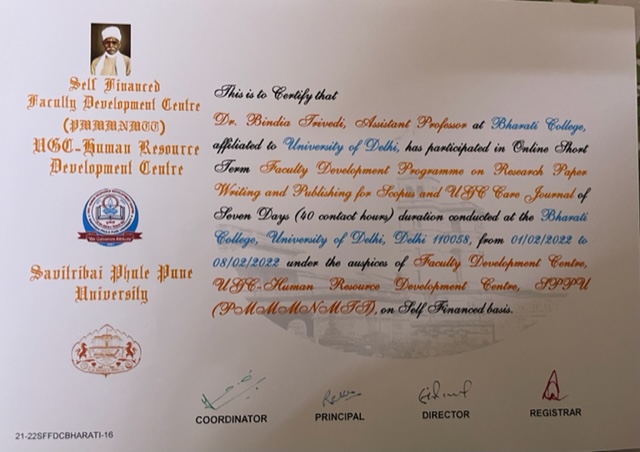 Self Financed
Faculty Development Centre
(PMMMNMTT)
UGC-Human Resource
Development Centre
Savitribai Phule Pune
University
This is to Certify that
Dr. Bindia Trivedi, Assistant Professor at Bharati College,
affiliated to University of Delhi, has participated in Online Short
Term Faculty Development Programme on Research Paper
Writing and Publishing for Scopus and UGC Care Journal of
Seven Days (40 contact hours) duration conducted at the Bharati
College, University of Delhi, Delhi 110058, from 01/02/2022 to
08/02/2022 under the auspices of Faculty Development Centre,
UGC-Human Resource Development Centre, SPPU
(PMMMNMTT), on Self Financed basis.
COORDINATOR
PRINCIPAL
DIRECTOR
REGISTRAR
21-22SFFDCBHARATI-16